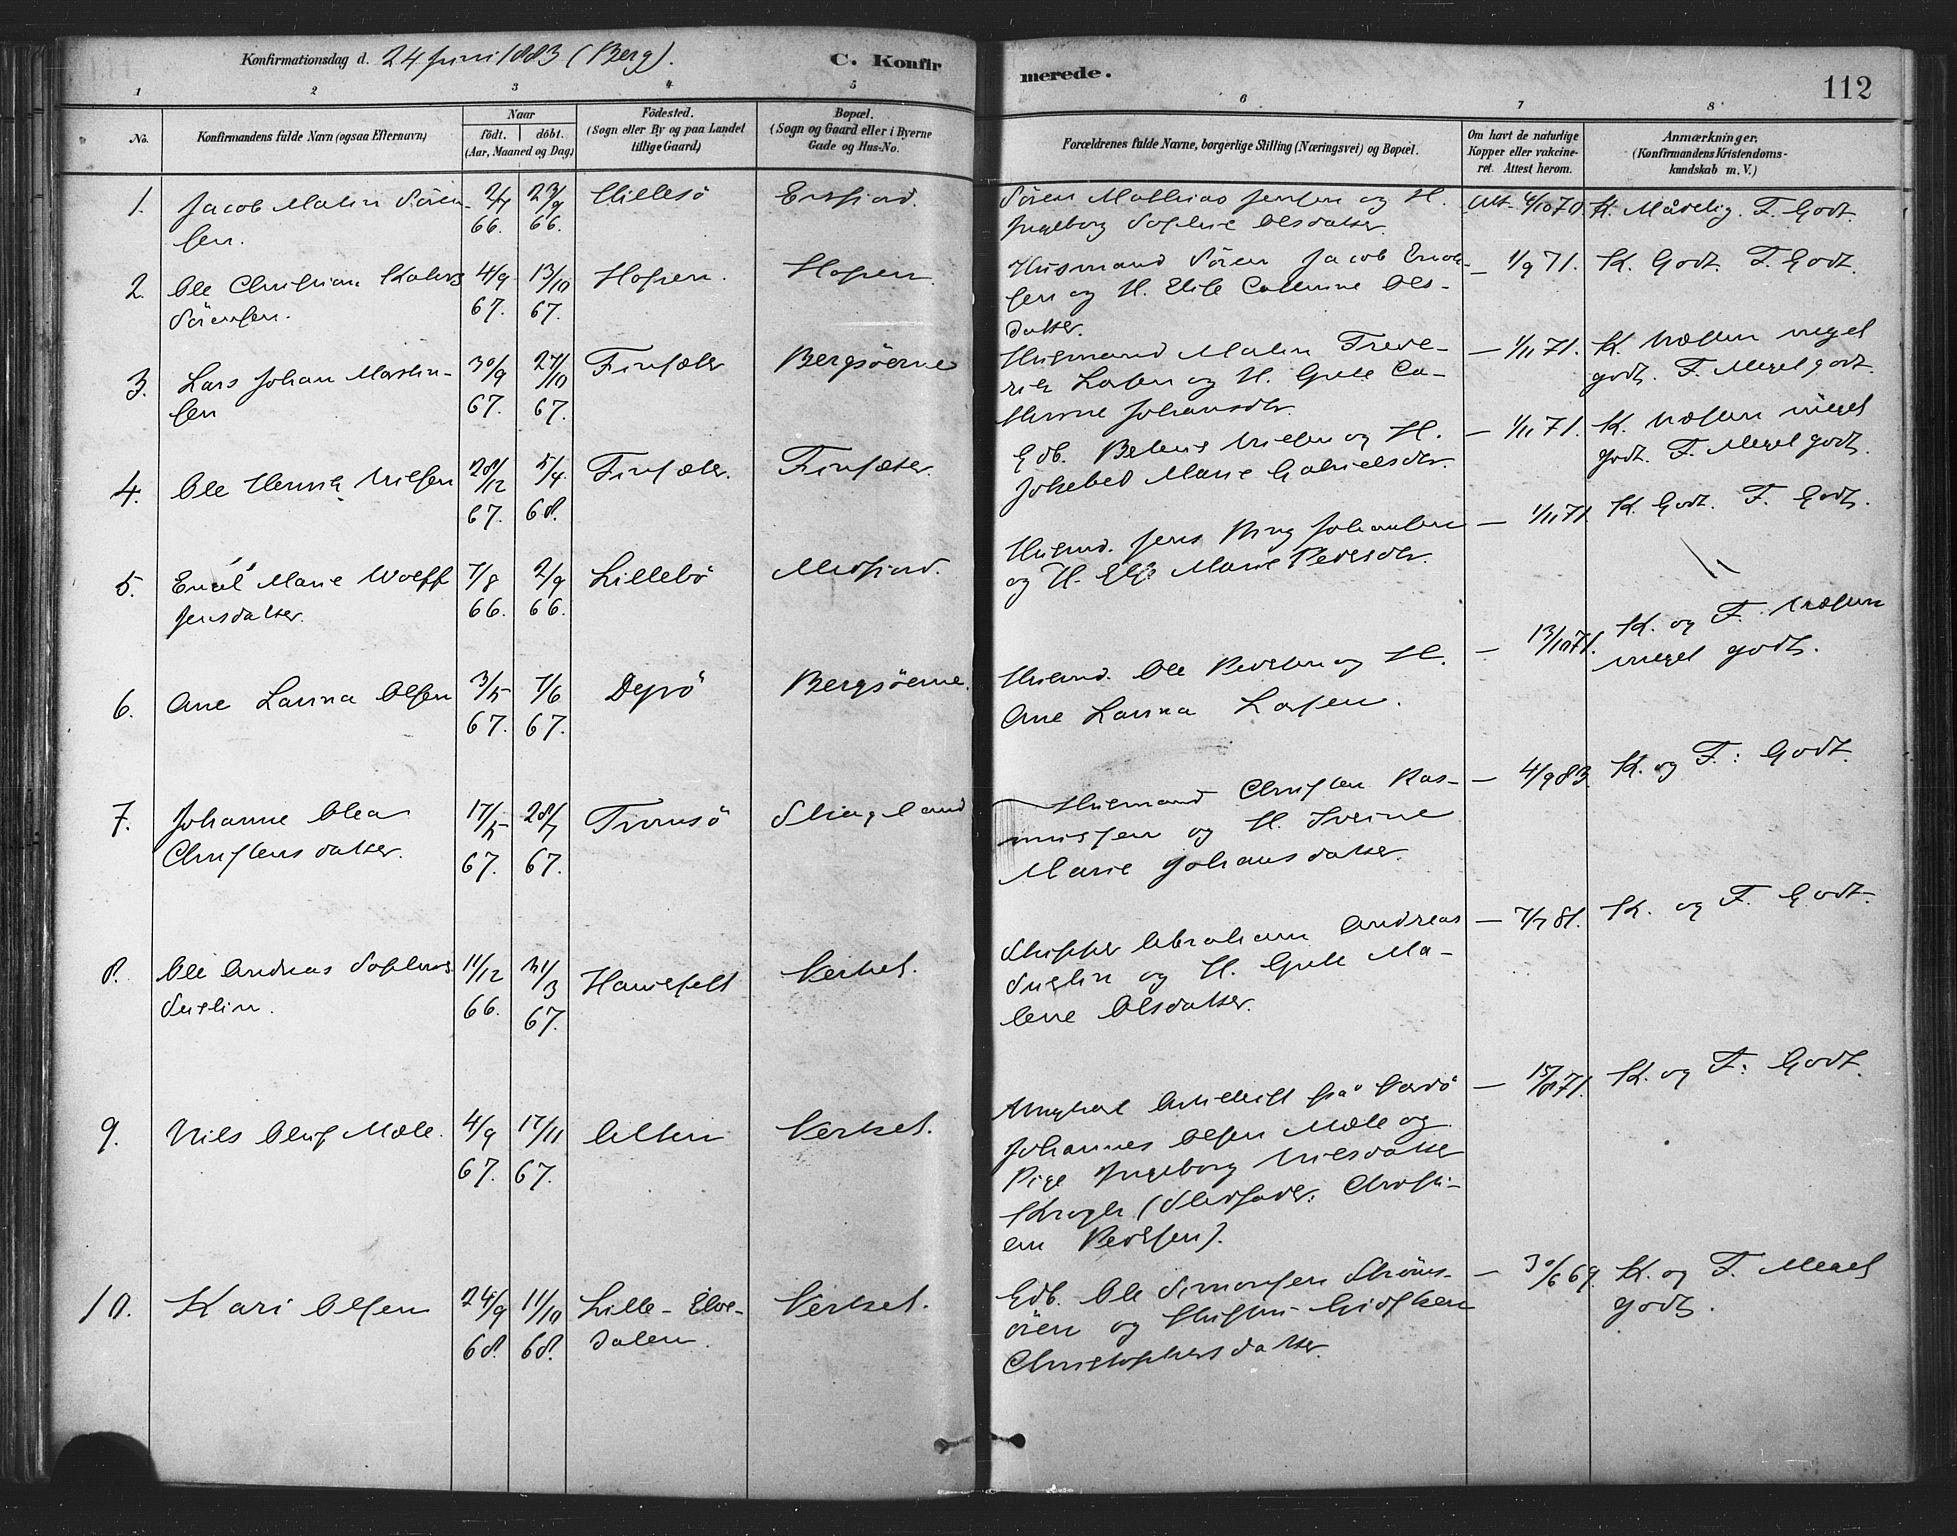 Konfirmationsdag d. 24 Juni 1883 (Berg).
C. Konfir
merede.
112
1 2 3 4 5 6 7 8
No.
Konfirmandens fulde Navn (ogsaa Efternavn)
Naar
födt. döbt.
(Aar, Maaned og Dag)
Födested.
(Sogn eller By og paa Landet
tillige Gaard)
Bopæl.
(Sogn og Gaard eller i Byerne
Gade og Hus-No.
Forældrenes fulde Navne, borgerlige Stilling (Næringsvei) og Bopæl.
Om havt de naturlige
Kopper eller vakcine-
ret. Attest herom.
Anmærkninger,
(Konfirmandens Kristendoms-
kundskab m. V.)
1. Jacob Sören-
sen.
66. 23/9 66.
Hillesö
Ersfjord.
Sören Mathias Jensen og H.
Ingeborg Sophie Olsdatter.
Att. 4/10 70.
K. Mådelig. F. Godt.
2. Ole Christian
Sörensen.
4/9 67. 13/10 67.
Hopen.
Hopen.
Husmand Sören Jacob
sen og H. Elise Cathrine Ols-
datter.
— 1/9 71.
K. Godt. F. Godt.
3. Lars Johan Martin-
sen
30/9 67. 27/10 67.
Finsæter
Bergsöerne
Husmand Martin Frede-
rik Larsen og H. Grete Ca-
thrine Johansdtr.
— 1/11 71.
K. Næsten meget
godt. F. Meget godt.
4. Ole Henrik Nilsen
28/12 67. 5/4 68.
Finsæter.
Finsæter.
Gdb. Nilsen og H.
Jokebed Marie Gabrielsdtr.
— 1/11 71.
K. Næsten meget
godt. F. Meget godt.
5. Marie Wolff
Jensdatter.
7/8 66. 2/9 66.
Lillebö
Medfjord.
Husmd. Jens Bing Johansen
og H. Else Marie Pedersdtr.
— 1/11 71.
K. Godt. F. Godt.
6. Ane Larina Olsen
3/5 67. 7/6 67.
Dyrö
Bergsöerne.
Husmd. Ole Pedersen og H.
Ane Larina Larsen.
— 13/10 71.
K. og F. Næsten
meget godt.
7. Johanne Olea
Christensdatter.
17/5 67. 28/7 67.
Tromsö
Stangeland
Husmand Christen Ras-
mussen og H.
Marie Johansdatter.
— 4/9 83.
K. og F: Godt.
8. Ole Andreas
11/12 66. 31/3 67.
Verket.
Skipper Abraham Andreas
og H. Grete Ma-
lene Olsdatter.
— 7/7 81.
K. og F. Godt.
9. Nils Oluf Mæle.
4/9 67. 17/11 67.
Alten
Verket.
Ungkarl
Johannes Olsen Mæle og
Pige Ingeborg Nilsdatter
Krogh (Stedfader: Christi-
an Pedersen).
— 15/8 71.
K. og F: Godt.
10. Kari Olsen
24/9 68. 11/10 68.
Lille-Elve-
dalen
Verket.
Gdb. Ole Simonsen Ströms-
öien og Hustru
Christophersdatter.
— 30/6 69.
K. og F. Meget
godt.